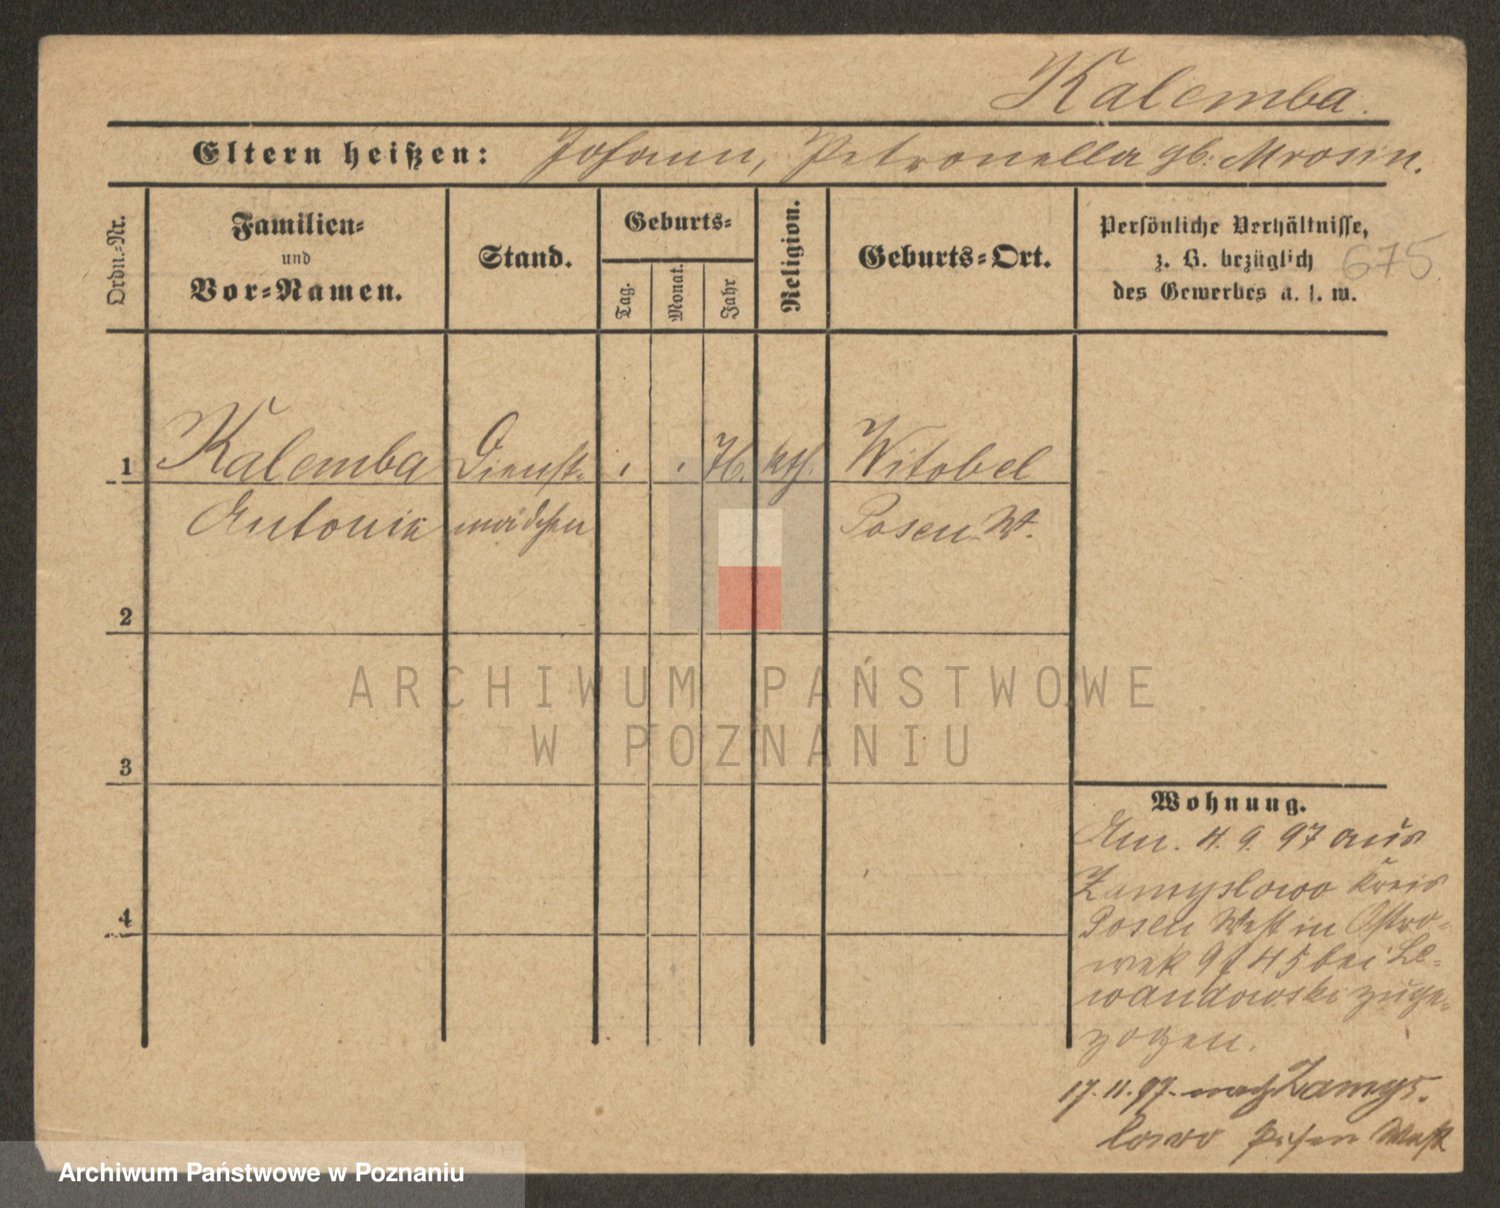 Kalemba.
Eltern heißen: Johann, Petronella gb: Mrosin.
Ordn.-Nr.
Familien-
und
Vor-Namen.
Stand.
Geburts-
Tag.
Monat.
Jahr
Religion.
Geburts-Ort.
Persönliche Verhältnisse,
z. B. bezüglich
des Gewerbes u. s. w.
675
1 Kalemba Dienst- kth. Witobel
Antonie mädchen Posen W.
2
3
4
ARCHIWUM PAŃSTWOWE
W POZNANIU
Wohnung.
Am. 4. 9. 97 aus
Zamyslowo Kreis
Posen West in Ostro-
wek 9/45 bei Le-
wandowski zuge-
zogen.
17. 11. 97. nach Zamys-
lowo Posen West
Archiwum Państwowe w Poznaniu